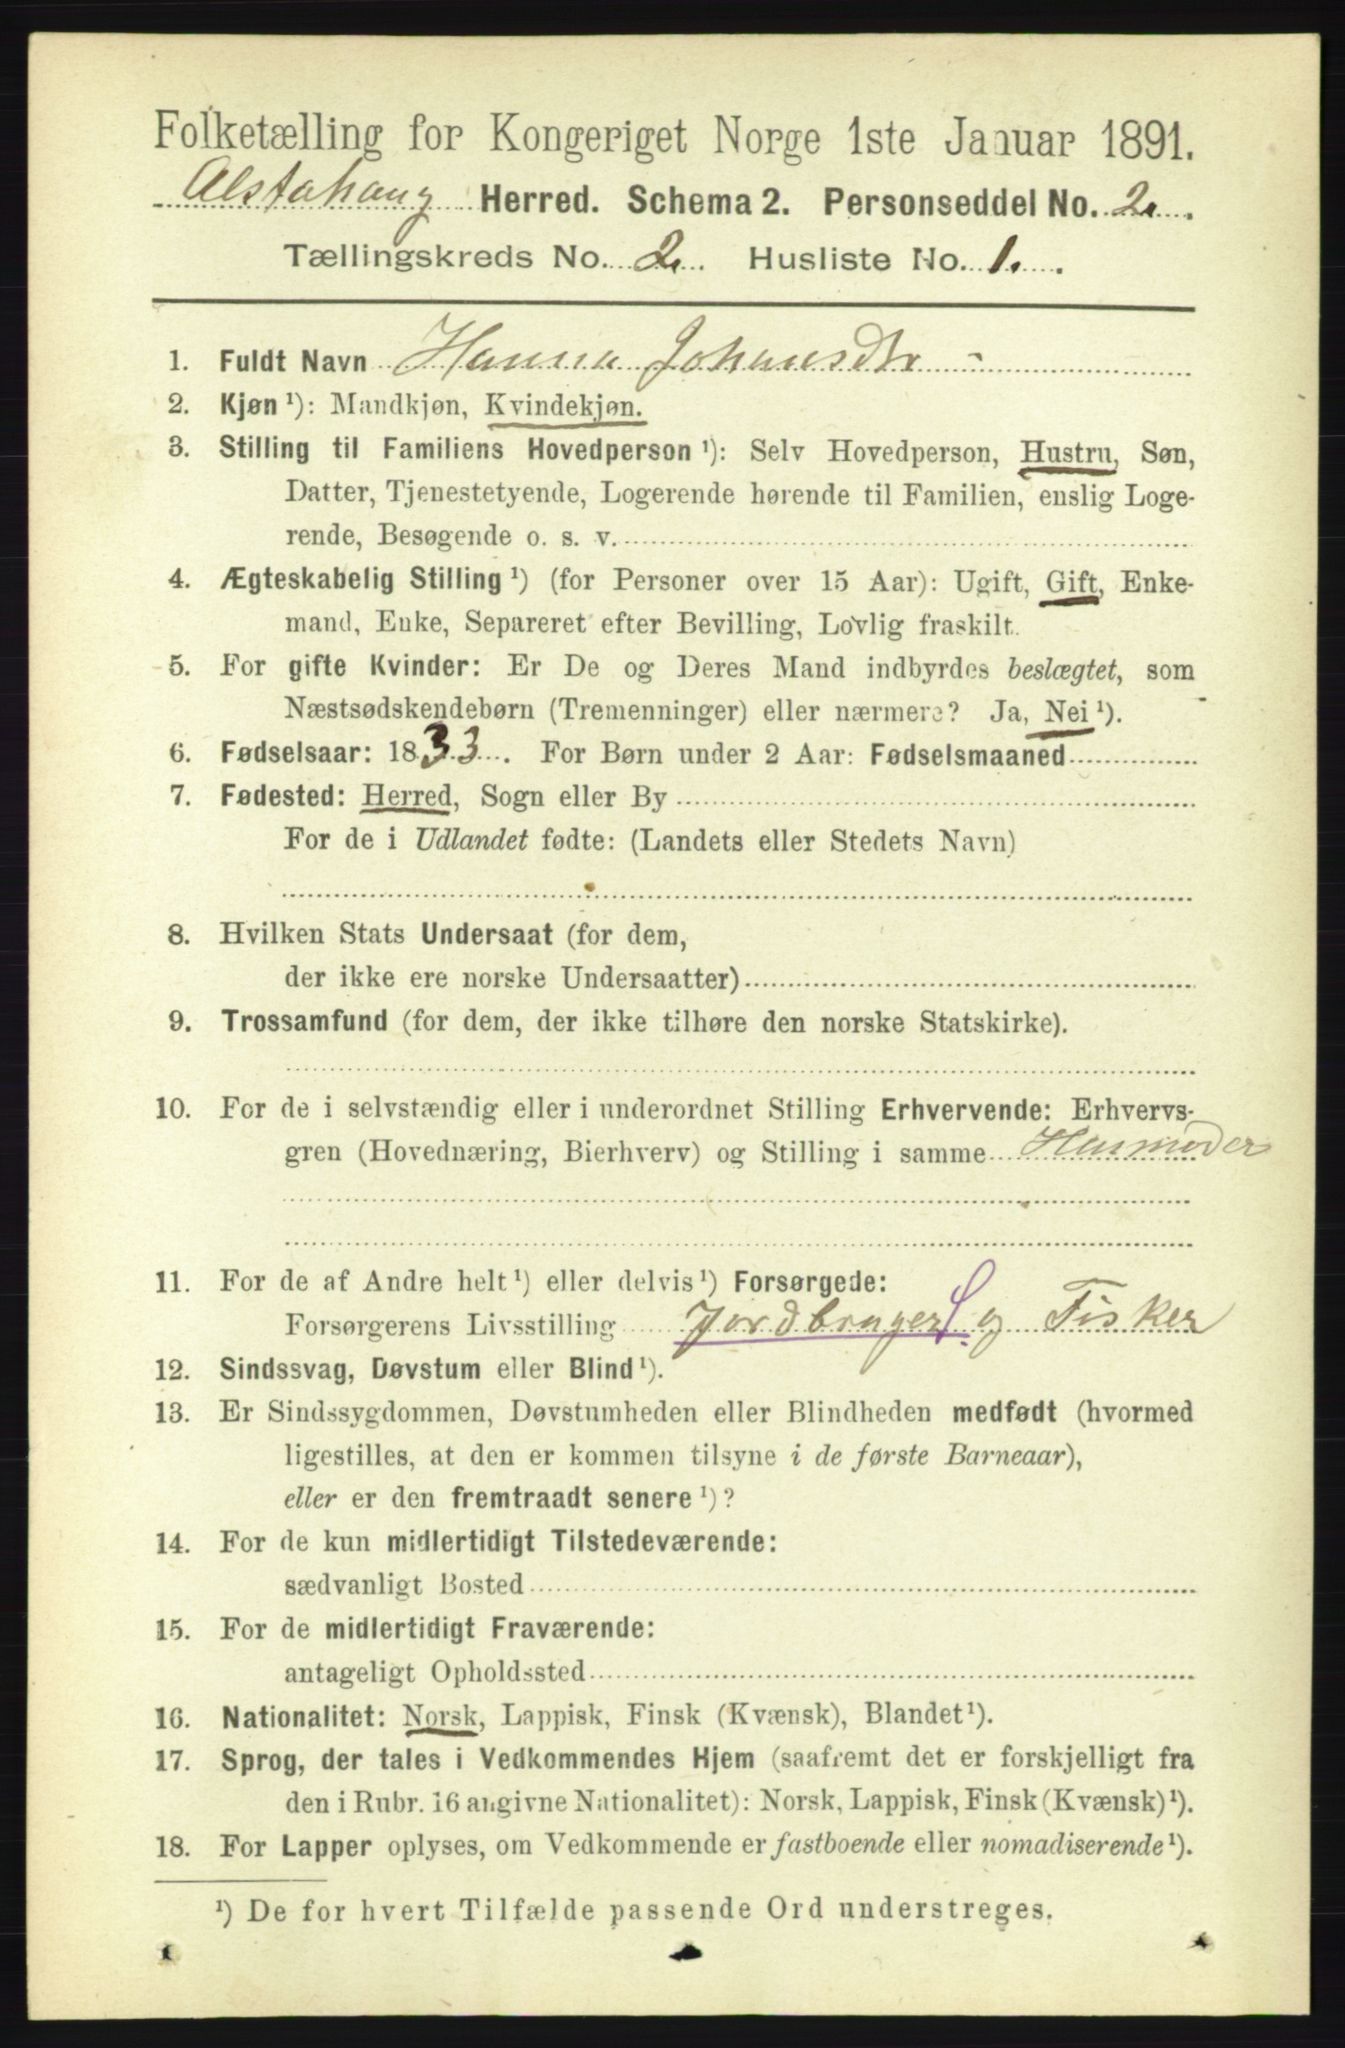 Folketælling for Kongeriget Norge 1ste Januar 1891.
Alstahaug Herred. Schema 2. Personseddel No. 2.
Tællingskreds No. 2. Husliste No. 1.
1. Fuldt Navn Hanna Johansdtr -
2. Kjøn ¹): Mandkjøn, Kvindekjøn.
3. Stilling til Familiens Hovedperson ¹): Selv Hovedperson, Hustru, Søn,
Datter, Tjenestetyende, Logerende hørende til Familien, enslig Loge-
rende, Besøgende o. s. v.
4. Ægteskabelig Stilling ¹) (for Personer over 15 Aar): Ugift, Gift, Enke-
mand, Enke, Separeret efter Bevilling, Lovlig fraskilt.
5. For gifte Kvinder: Er De og Deres Mand indbyrdes beslægtet, som
Næstsødskendebørn (Tremenninger) eller nærmere? Ja, Nei ¹).
6. Fødselsaar: 1833. For Børn under 2 Aar: Fødselsmaaned
7. Fødested: Herred, Sogn eller By
For de i Udlandet fødte: (Landets eller Stedets Navn)
8. Hvilken Stats Undersaat (for dem,
der ikke ere norske Undersaatter)
9. Trossamfund (for dem, der ikke tilhøre den norske Statskirke).
10. For de i selvstændig eller i underordnet Stilling Erhvervende: Erhvervs-
gren (Hovednæring, Bierhverv) og Stilling i samme Husmoder
11. For de af Andre helt ¹) eller delvis ¹) Forsørgede:
Forsørgerens Livsstilling Jordbruger S og Fisker
12. Sindssvag, Døvstum eller Blind ¹).
13. Er Sindssygdommen, Døvstumheden eller Blindheden medfødt (hvormed
ligestilles, at den er kommen tilsyne i de første Barneaar),
eller er den fremtraadt senere ¹)?
14. For de kun midlertidigt Tilstedeværende:
sædvanligt Bosted
15. For de midlertidigt Fraværende:
antageligt Opholdssted
16. Nationalitet: Norsk, Lappisk, Finsk (Kvænsk), Blandet ¹).
17. Sprog, der tales i Vedkommendes Hjem (saafremt det er forskjelligt fra
den i Rubr. 16 angivne Nationalitet): Norsk, Lappisk, Finsk (Kvænsk) ¹).
18. For Lapper oplyses, om Vedkommende er fastboende eller nomadiserende ¹).
¹) De for hvert Tilfælde passende Ord understreges.